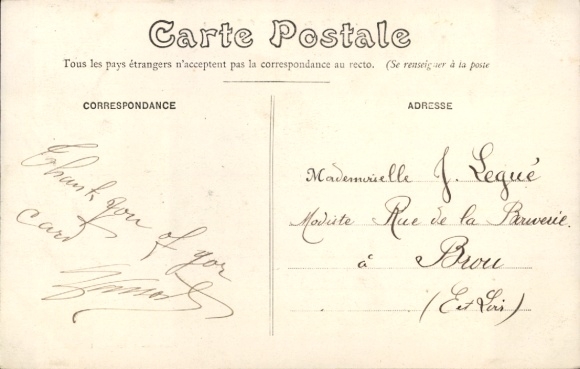 Carte Postale
Tous les pays étrangers n'acceptent pas la correspondance au recto. (Se renseigner à la poste
CORRESPONDANCE
ADRESSE
Thank you of yor
card
Mademoiselle J. Legué
Modiste Rue de la
à Brou
(E et Loir)